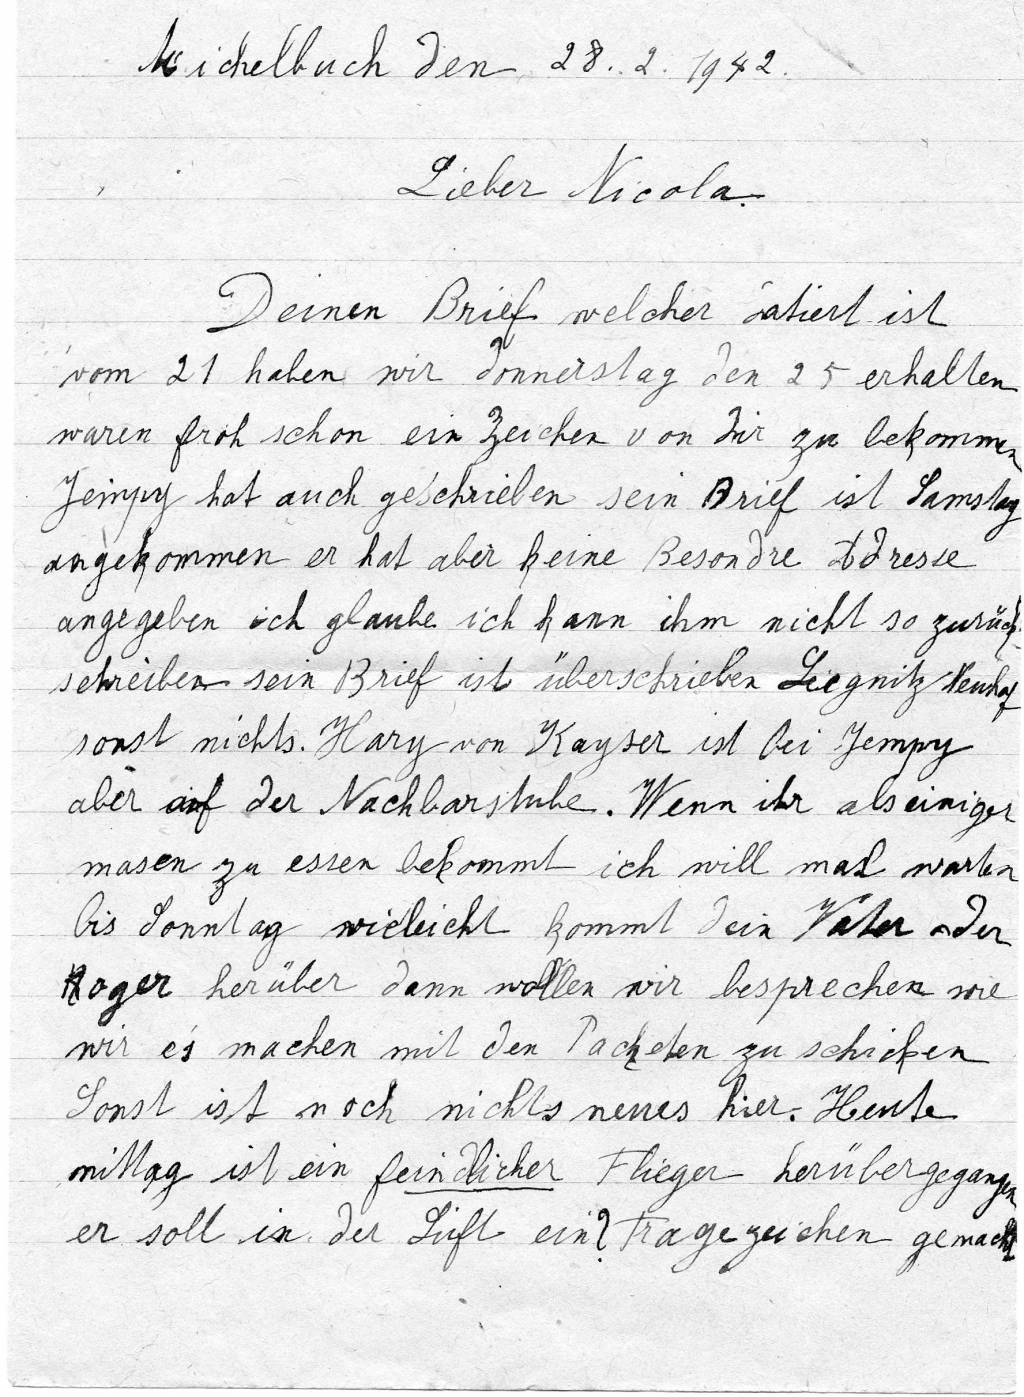 Michelbuch den 28. 2. 1942.
Lieber Nicola.
Deinen Brief welcher datiert ist
vom 21 haben wir donnerstag den 25 erhalten
waren froh schon ein Zeichen von dir zu bekommen
Jempy hat auch geschrieben sein Brief ist Samstag
angekommen er hat aber keine Besondre Adresse
angegeben ich glaube ich kann ihm nicht so zurück
schreiben sein Brief ist überschrieben Liegnitz Neuhof
sonst nichts. Hary von Kayser ist bei Jempy
aber auf der Nachbarstube. Wenn ihr als einiger
masen zu essen bekommt ich will mal warten
bis Sonntag vieleicht kommt dein Vater oder
Roger herüber dann wollen wir besprechen wie
wir es machen mit den Packeten zu schicken
Sonst ist noch nichts neues hier. Heute
mittag ist ein feindlicher Flieger herübergegangen
er soll in der Luft ein? Fragezeichen gemacht